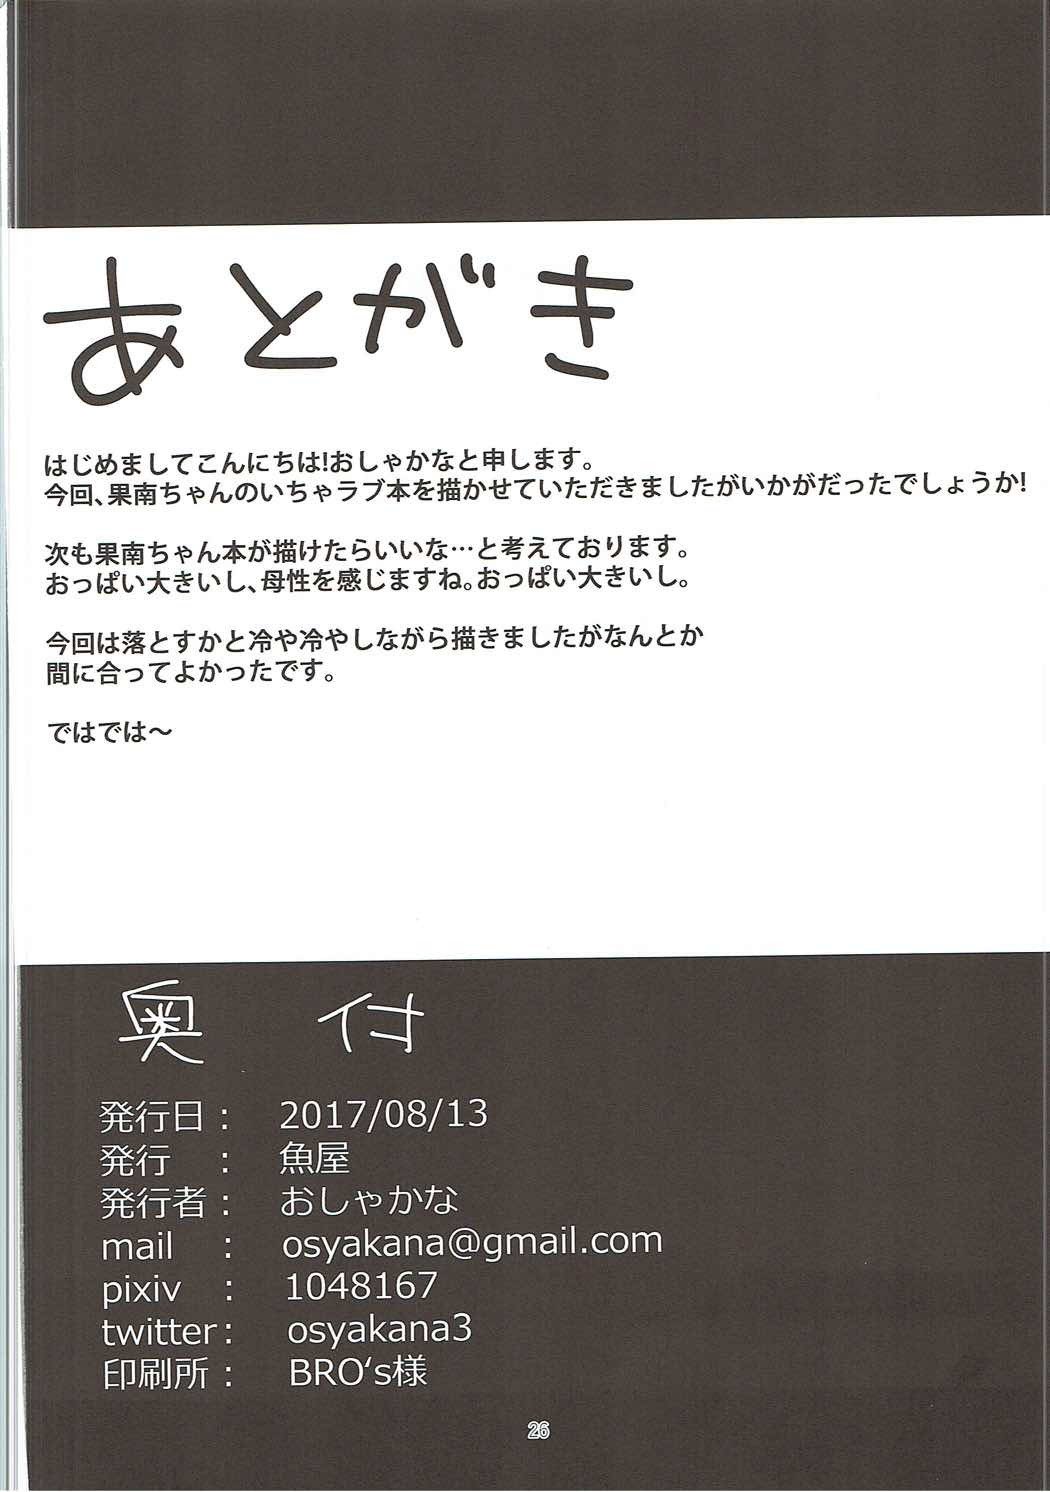 あとがき
はじめましてこんにちは!おしゃかなと申します。
今回、果南ちゃんのいちゃラブ本を描かせていただきましたがいかがだったでしょうか!
次も果南ちゃん本が描けたらいいな…と考えております。
おっぱい大きいし、母性を感じますね。おっぱい大きいし。
今回は落とすかと冷や冷やしながら描きましたがなんとか
間に合ってよかったです。
ではでは～
奥付
発行日: 2017/08/13
発行 : 魚屋
発行者: おしゃかな
mail : osyakana@gmail.com
pixiv : 1048167
twitter: osyakana3
印刷所: BRO‘s様
26